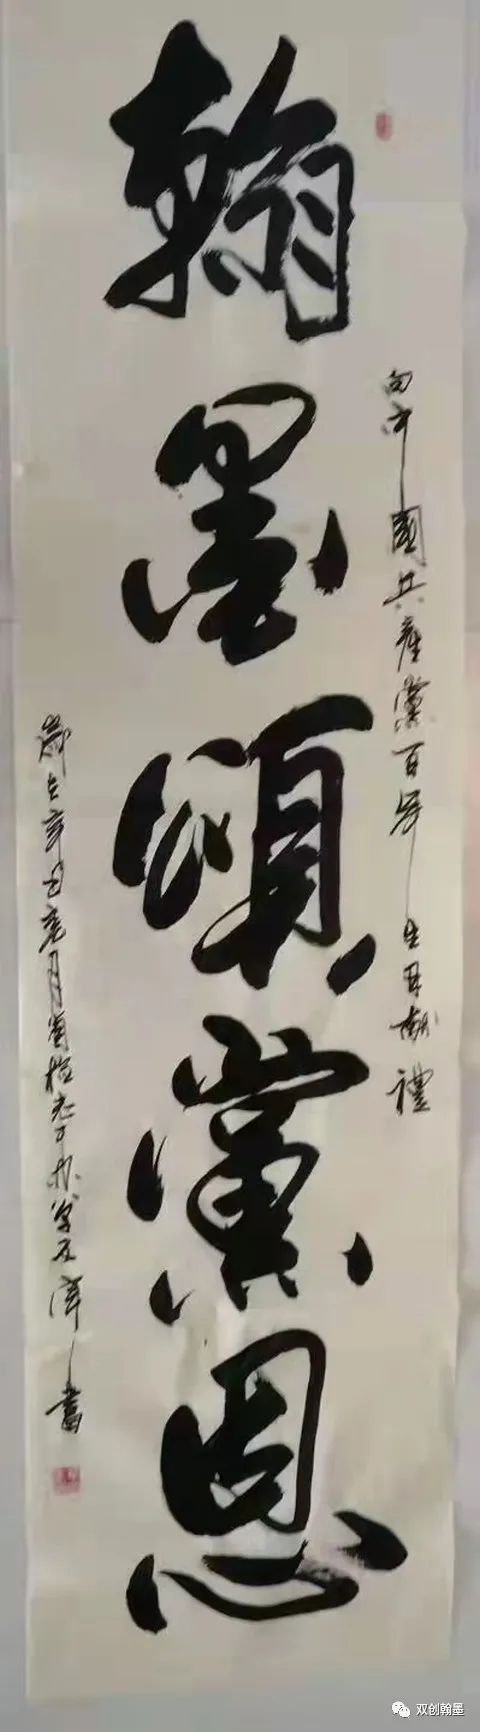 翰墨頌黨恩
向中國共產黨百年生日獻禮
歲在辛丑
書
双创翰墨